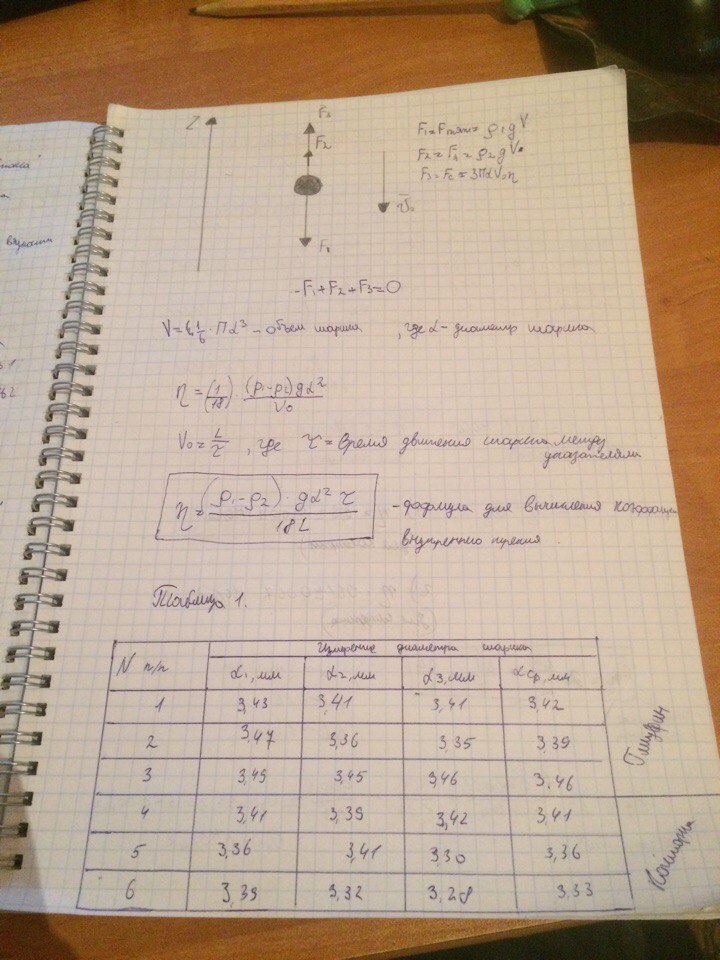 Z
F₃
F₂
F₁
v̄₀
F₁ = Fтяж = ρ₁gV
F₂ = FА = ρ₂gV
F₃ = Fс = 3πdV₀η
-F₁+F₂+F₃=0
V = 1/6 · Пd³ – объем шарика, где d – диаметр шарика
η = (1/18) · (ρ₁-ρ₂)gd²/V₀
V₀ = L/τ, где τ = время движения шарика между
указателями
η = (ρ₁-ρ₂)·gd²τ/18L – формула для вычисления
внутренно трения.
Таблица 1.
N п/п Измерение диаметра шарика
d₁,мм d₂,мм d₃,мм dср,мм
1 3,43 3,41 3,41 3,42
2 3,47 3,36 3,35 3,39
3 3,49 3,45 3,46 3,46
4 3,41 3,39 3,42 3,41
5 3,36 3,41 3,30 3,36
6 3,39 3,32 3,28 3,33